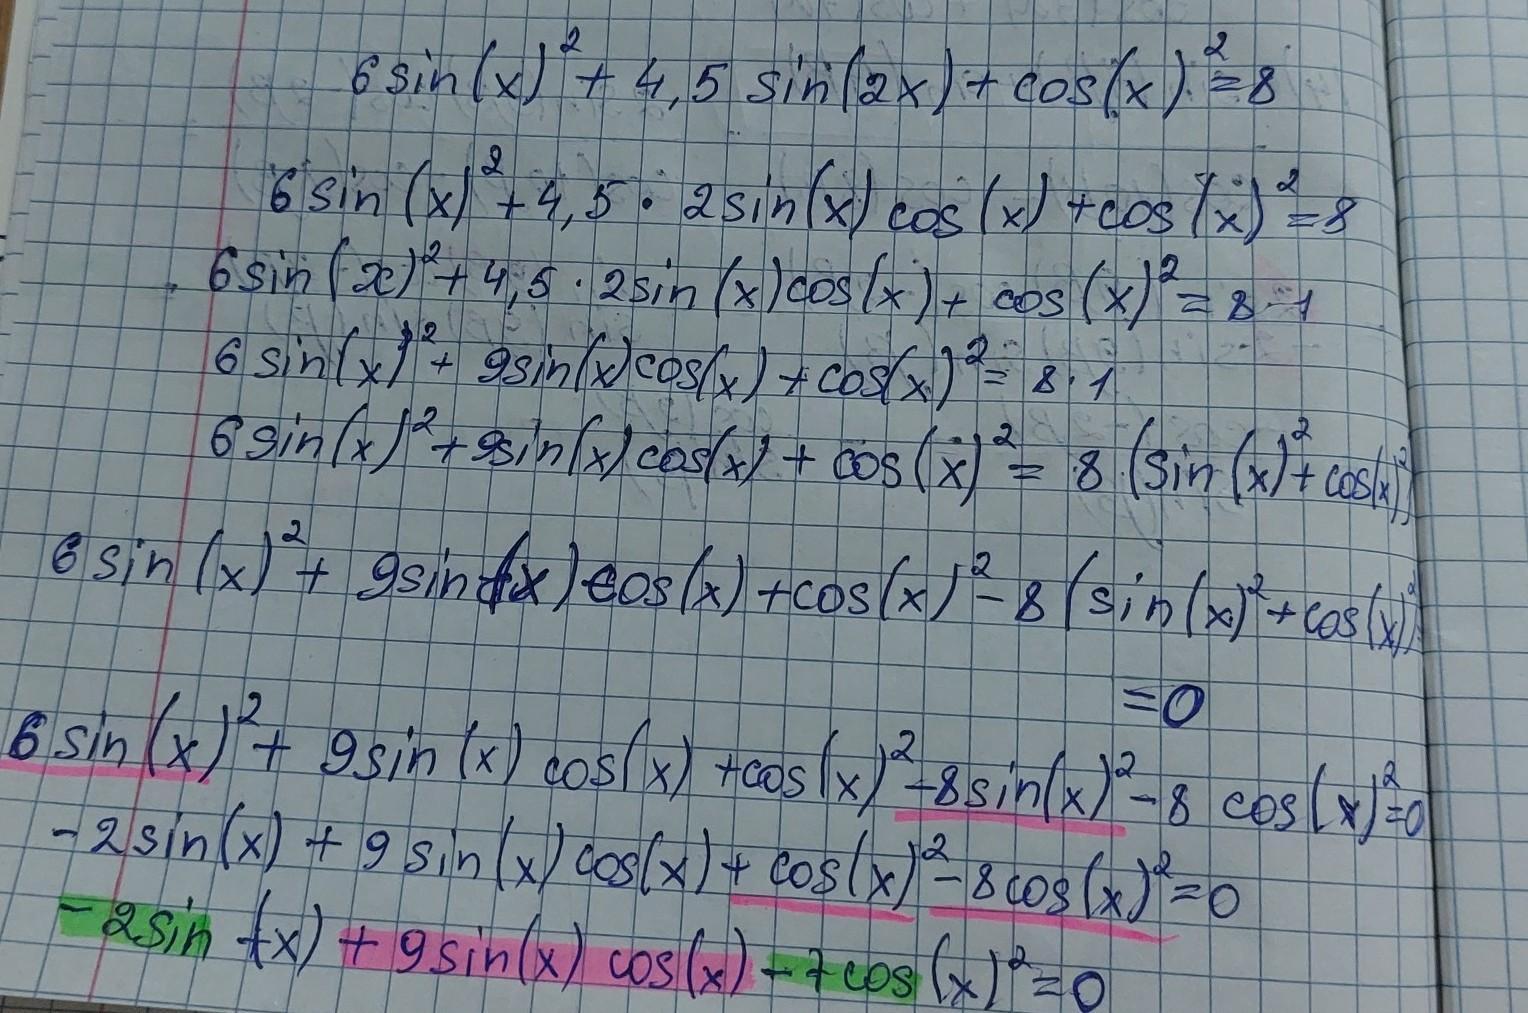 6sin(x)²+4,5 sin(2x)+cos(x)²=8
6sin(x)²+4,5·2sin(x)cos(x)+cos(x)²=8
6sin(x)²+4,5·2sin(x)cos(x)+cos(x)²=8·1
6sin(x)²+9sin(x)cos(x)+cos(x)²=8·1
6sin(x)²+9sin(x)cos(x)+cos(x)²=8(sin(x)²+cos(x)²)
6sin(x)²+9sin(x)cos(x)+cos(x)²-8(sin(x)²+cos(x)²)
=0
6sin(x)²+9sin(x)cos(x)+cos(x)²-8sin(x)²-8cos(x)²=0
-2sin(x)+9sin(x)cos(x)+cos(x)²-8cos(x)²=0
-2sin(x)+9sin(x)cos(x)-7cos(x)²=0